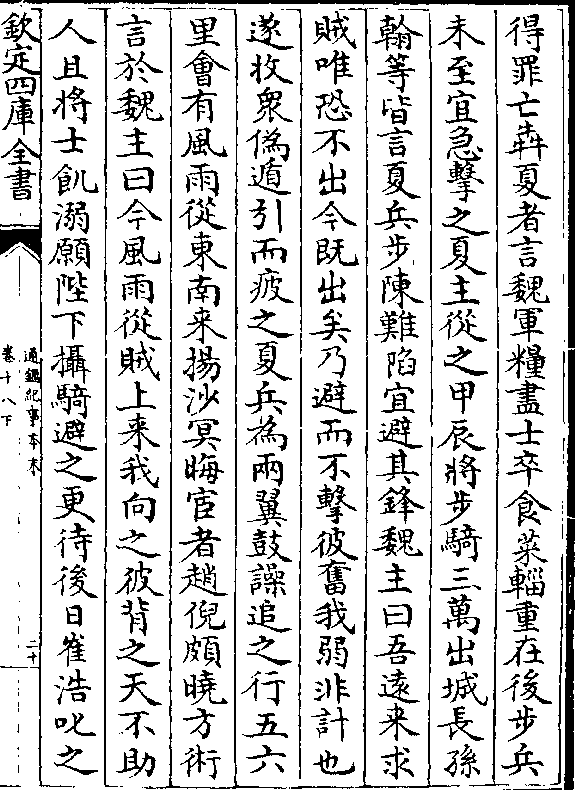 得罪亡犇夏者言魏軍糧盡士卒食菜輜重在後步兵
未至宜急擊之夏主從之甲辰將步騎三萬出城長孫
翰等皆言夏兵步陳難陷宜避其鋒魏主曰吾遠来求
賊唯恐不出今既出矣乃避而不擊彼奮我弱非計也
遂收衆僞遁引而疲之夏兵為兩翼鼓譟追之行五六
里會有風雨從東南来揚沙冥晦宦者趙倪頗曉方術
言於魏主曰今風雨從賊上来我向之彼背之天不助
人且將士飢渴願陛下攝騎避之更待後日崔浩叱之
欽定四庫全書
通鑑紀事本末
卷十八下
二十